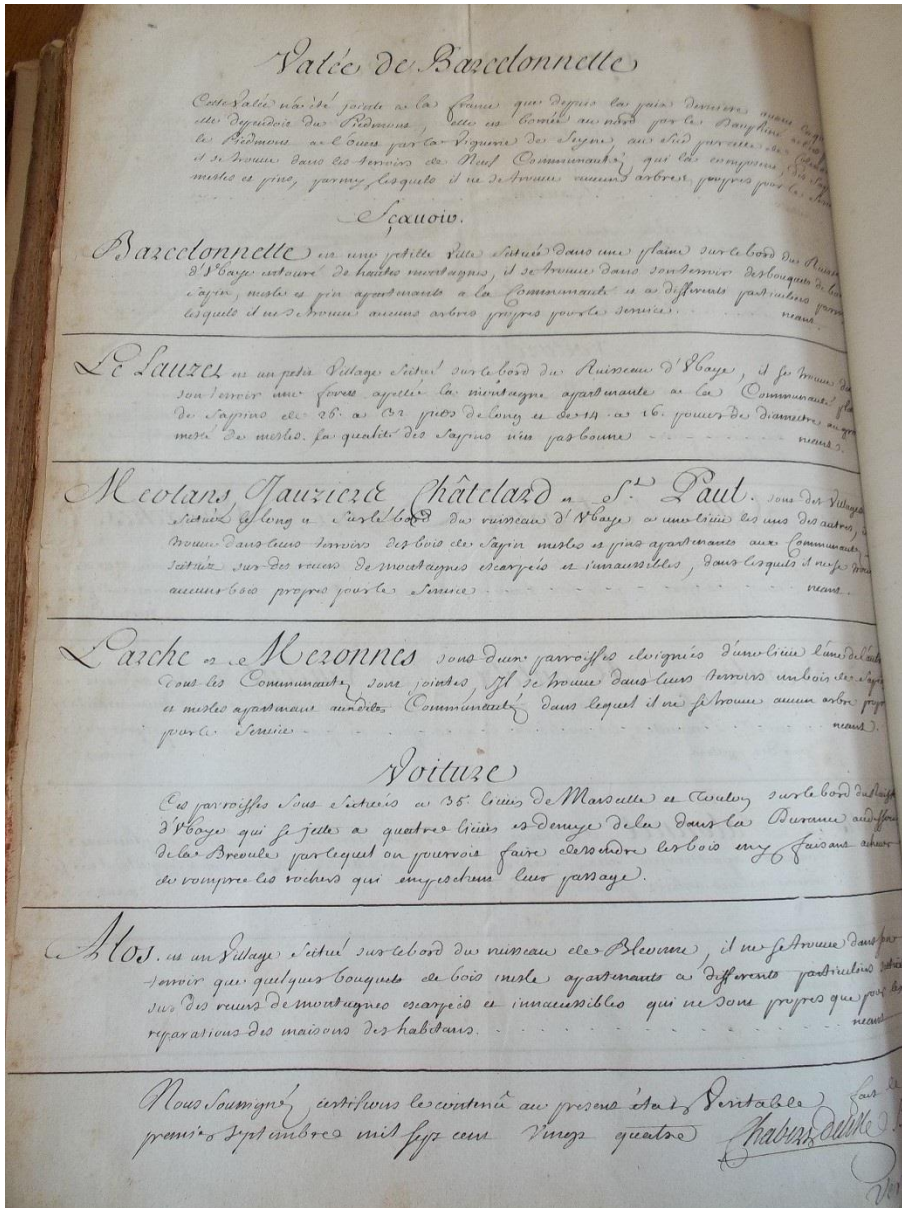 Valée de Barcelonnette
Cette Valée n'a été jointe a la france que depuis la paix derniere avant laq
elle dependoit du Piedmont, elle est bornée au nord par le Dauphiné a l'est
le Piedmont a l'Ouest par la Viguerie de Seyne, au Sud par celle de
il se trouve dans les terroirs de Neuf Communautéz qui la composent, des
mesles et pins, parmy lesquels il ne se trouve aucuns arbres propres pour le Serv
Sçavoir.
Barcelonnette est une petitte Ville Scituée dans une plaine sur le bord du Ruiss
d'Vbaye entouré de hautes montagnes, il se trouve dans son terroir des bouquets de bois
sapin, mesle et pin apartenants a la Communauté et a differents particuliers parmi
lesquels il ne se trouve aucuns arbres propres pour le service. neant.
Le Lauzet est un petit Village Scitué sur le bord du Ruisseau d'Vbaye, il se trouve da
son terroir une forest apellée la montagne apartenante a la Communauté
de Sapins de 26. a 32 pieds de long et de 14. a 16. pouces de diametre au gro
meslé de mesles. la qualité des Sapins n'en pas bonne neant.
Meolans, Jauziers Châtelard et St. Paul. sont des Villages
Scituéz le long et sur le bord du ruisseau d'Vbaye a une lieue les uns des autres,
trouve dans leurs terroirs des bois de sapin mesles et pins apartenants aux Communautéz
scituéz sur des revers de montagnes escarpéés et innaussibles, dans lesquels il ne se trouv
aucuns bois propres pour le Service neant.
Larche et Meronnes sont deux parroisses eloignées d'une lieue l'une de l'autre
dont les Communautéz sont jointes, Il se trouve dans leurs terroirs un bois de Sapin
et mesles apartenant auxdites Communautéz dans lequel il ne se trouve aucun arbre propr
pour le Service neant.
Voiture
Ces parroisses sont Scituéés a 35. lieues de Marseille et Toulon sur le bord du Ruiss
d'Vbaye qui se jette a quatre lieues et demye de la dans la Durance audessous
de la Breoule par lequel on pourroit faire dessendre les bois en y faisant achever
de rompre les rochers qui empeschent leur passage.
Alos. est un Village Scitué sur le bord du ruisseau de Bleonne, il ne se trouve dans son
terroir que quelques bouquets de bois mesle apartenants a differents particuliers
sur des revers de montagnes escarpéés et innacessibles qui ne sont propres que pour les
reparations des maisons des habitans. neant
Nous Soussigné, certifions le contenu au present état Veritable, fait le
premier Septembre mil sept cent Vingt quatre